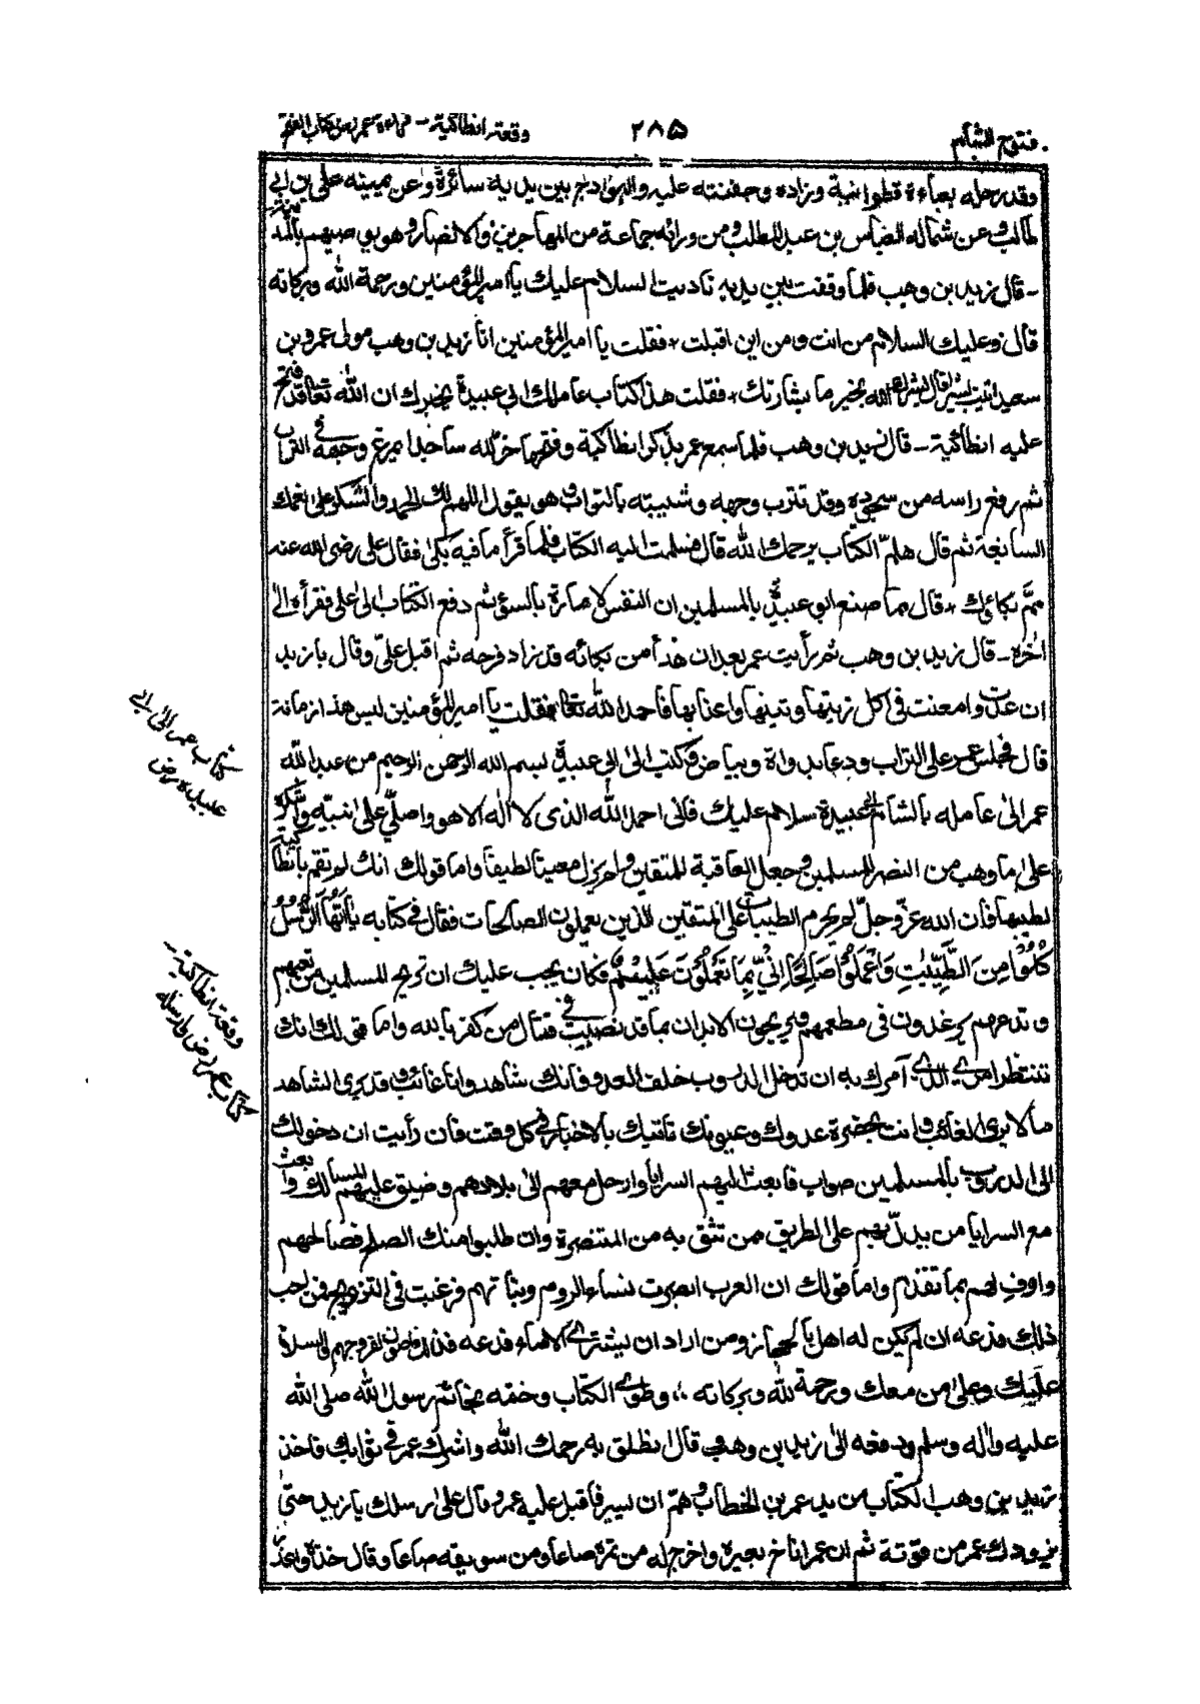 فتوح الشام
٢٨٥
وقعة انطاكية - قراءة عمر رض كتاب الفتح
وقد رحله بعباءة قطوانية وزاده وجفنته عليه والهوادج بين يديه سائرة وعن يمينه علي بن ابي
طالب وعن شماله العباس بن عبد المطلب ومن ورائه جماعة من المهاجرين والانصار وهو يوصيهم بالمدينة
- قال زيد بن وهب فلما وقفت بين يديه ناديت السلام عليك يا امير المؤمنين ورحمة الله وبركاته
قال وعليك السلام من انت ومن اين اقبلت ، فقلت يا امير المؤمنين انا زيد بن وهب مولى عمرو بن
سعيد اتيت بشيرا قال بشرك الله بخير ما بشارتك ، فقلت هذا كتاب عاملك ابي عبيدة يخبرك ان الله تعالى قد فتح
عليه انطاكية - قال زيد بن وهب فلما سمع عمر بذكر انطاكية وفتحها خر لله ساجدا يمرغ وجهه في التراب
ثم رفع راسه من سجوده وقد تترب وجهه وشيبته بالتراب وهو يقول اللهم لك الحمد والشكر على نعمك
السابغة ثم قال هلمّ الكتاب يرحمك الله قال فسلمت اليه الكتاب فلما قرأ ما فيه بكى فقال علي رضى الله عنه
ممَّ بكائك ، قال مما صنع ابو عبيدة بالمسلمين ان النفس لامارة بالسوء ثم دفع الكتاب الى علي فقرأه الى
اخره - قال زيد بن وهب ثم رأيت عمر بعد ان هدأ من بكائه قد زاد فرحه ثم اقبل عليّ وقال يا زيد
ان عدت وامعنت في اكل زيتها وتينها واعنابها فاحمد الله تعالى فقلت يا امير المؤمنين ليس هذا زمانه
قال فجلس عمر على التراب ودعا بدواة وبياض وكتب الى ابي عبيدة بسم الله الرحمن الرحيم من عبد الله
عمر الى عامله بالشام ابي عبيدة سلام عليك فاني احمد الله الذى لا اله الا هو واصلّي على نبيّه واشكره
على ما وهب من النصر للمسلمين وجعل العاقبة للمتقين ولم يزل معينا لطيفا واما قولك انك لم تقم بانطاكية
لطيبها فان الله عزّ وجلّ لم يحرم الطيبات على المتقين الذين يعملون الصالحات فقال في كتابه يٰاَيُّهَا الرُّسُلُ
كُلُوْا مِنَ الطَّيِّبٰتِ وَاعْمَلُوْا صَالِحًا اِنِّيْ بِمَا تَعْمَلُوْنَ عَلِيْمٌ فكان يجب عليك ان تريح المسلمين من تعبهم
وتدعهم يرغدون في مطعمهم ويريحون الابدان بما قد نصبت في قتال من كفر بالله واما قولك انك
تنتظر امري الذي آمرك به ان تدخل الدروب خلف العدو فانك شاهد وانا غائب وقد يرى الشاهد
ما لا يرى الغائب وانت بحضرة عدوك وعيونك تاتيك بالاخبار في كل وقت فان رأيت ان دخولك
الى الدروب بالمسلمين صواب فابعث اليهم السرايا وارحل معهم الى بلادهم وضيق عليهم المسالك وابعث
مع السرايا من يدلّ بهم على الطريق ممن تثق به من المتنصرة وان طلبوا منك الصلح فصالحهم
واوفِ لهم بما تقدم واما قولك ان العرب ابصرت نساء الروم وبناتهم فرغبت في التزويج فمن احب
ذلك فدعه ان لم يكن له اهل بالحجاز ومن اراد ان يشتري الاماء فدعه فذلك اصون لفروجهم والسلام
عليك وعلى من معك ورحمة الله وبركاته ، وطوي الكتاب وختمه بخاتم رسول الله صلى الله
عليه واله وسلم ودفعه الى زيد بن وهب وقال انطلق به رحمك الله واشرك عمر في ثوابك فاخذ
زيد بن وهب الكتاب من يد عمر بن الخطاب وهمّ ان يسير فاقبل عليه عمر وقال على رسلك يا زيد حتى
يزودك عمر من قوته ثم ان عمر اناخ بعيره واخرج له من تمره صاعا ومن سويقه صاعا وقال خذه واعذر
كتاب عمر الى ابي
عبيدة رض
وقعة انطاكية -
كتاب عمر رض وارساله